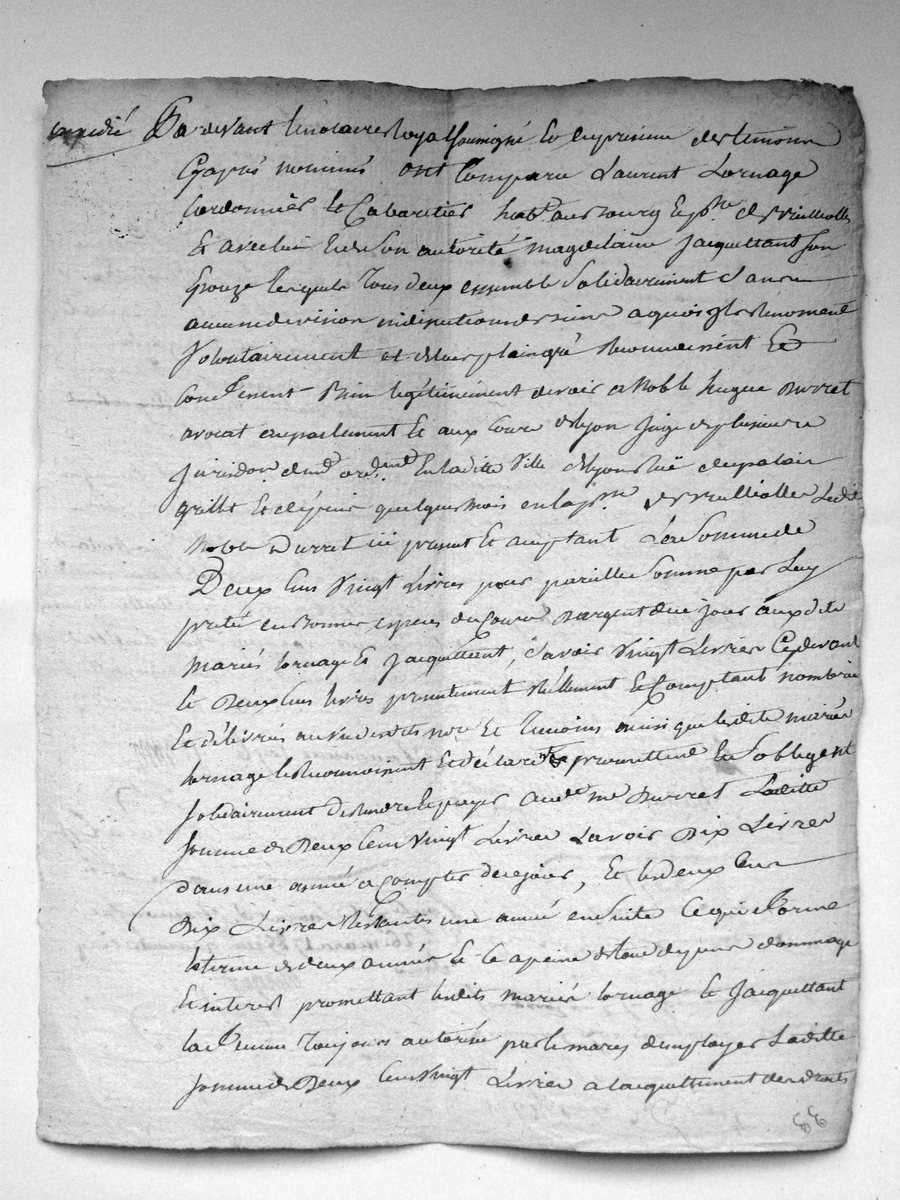 expedié Pardevant le notaire Royal soussigné et en presence des temoins
cy après nommés ont comparu Laurent Lornage
cordonnier et cabaretier habt. au bourg et psse de
et avec lui et de son autorité magdelaine jacquettant son
Epouze lesquels tous deux ensemble solidairement sans
aucune division ni discution de a quoi ils Renoncent
volontairement et de leur plain gré Reconnoissent et
confessent Bien legitimement devoir a Noble hugue Durret
avocat en parlement et aux cours de lyon juge de plusieurs
jurisdon. demt. ordremt. En laditte Ville de lyon Ruë du palais
grillet et depuis quelques mois en la psse. de Ledit
Noble Durret ici present et acceptant La Somme de
Deux Cens Vingt Livres pour pareille Somme par Luy
preté en Bonnes especes du Cours D'argent de ce jour aux dits
mariés Lornage et jacquettant, Savoir Vingt Livres Cy devant
et Deux Cens Livres presentement Réellement et Comptant nombrés
Et délivrés au vu desdits nore. Et Temoins ainsi que lesdits mariés
Lornage le Reconnoissent et déclarent promettent Et S'obligent
solidairement de Rendre et payer aud. me. Durret Laditte
somme de Deux Cens Vingt Livres Savoir Dix Livres
dans une année a compter de ce jour, Et les deux Cens
Dix Livres Restantes une année ensuite Ce qui forme
le terme de deux années et ce a peine de tous depens dommage
et interest promettant lesdits mariés Lornage et Jacquettant
la femme Toujours autorisée par le maris d'employer Laditte
somme de Deux Cens Vingt Livres a l'acquittement des droits